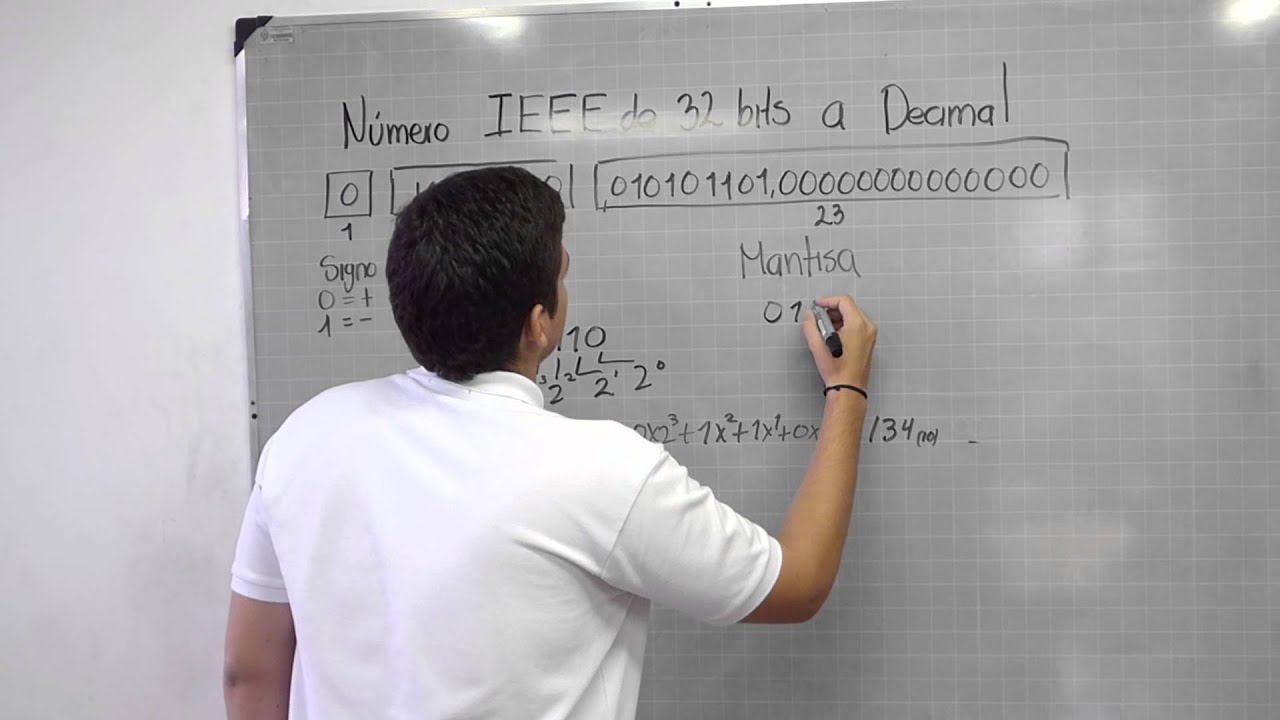 Número IEEE de 32 bits a Decimal
0 0 010101101,00000000000000
1 23
Signo Mantisa
0 = +
1 = -
01
110
2 2¹ 2⁰
0x2³+1x²+1x¹+0x 134(10) -